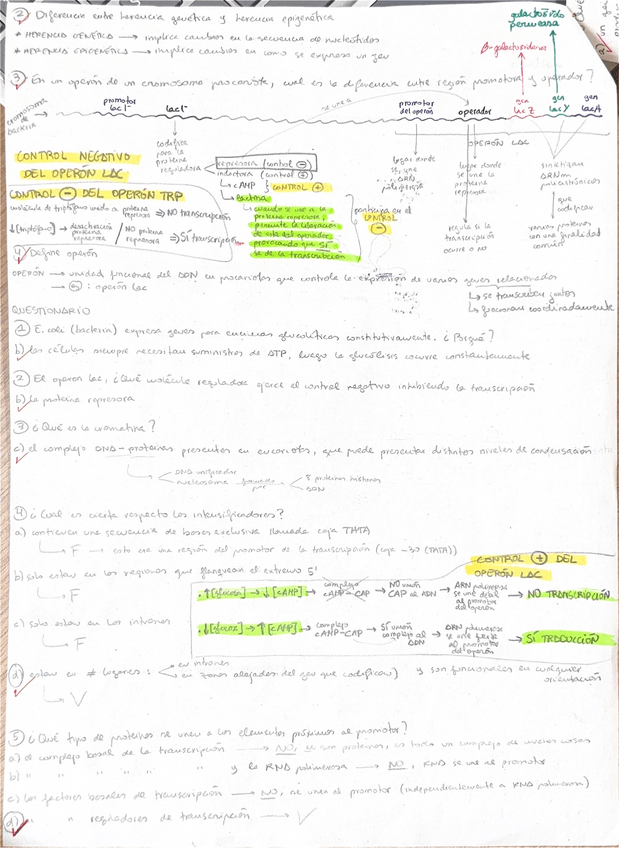 galactósido
permeasa
β-galactosidasa
② Diferencia entre herencia genética y herencia epigenética
* HERENCIA GENÉTICA → implica cambios en la secuencia de nucleótidos
* HERENCIA EPIGENÉTICA → implica cambios en como se expresa un gen
③ En un operón de un cromosoma procariote, cual es la diferencia entre región promotora y operador?
cromosoma de bacteria
promotor lacI⁻
lacI⁻
se une a
promotor del operón
operador
gen lac Z
gen lac Y
gen lacA
OPERÓN LAC
codifica para la proteína reguladora
represora (control ⊖)
inductora (control ⊕)
↳ cAMP } CONTROL ⊕
↳ lactosa
↳ cuando se une a la proteína represora, permite la liberación de esta del operador provocando que SÍ se de la transcripción
participa en el CONTROL ⊖
lugar donde se une ARN polimerasa
lugar donde se une la proteína represora
regula si la transcripción ocurre o no
sintetizan ARNm policistrónicos
que codifican
varias proteínas con una finalidad común
CONTROL NEGATIVO DEL OPERÓN LAC
CONTROL ⊖ DEL OPERÓN TRP
molécula de triptófano unida a proteína represora ⇒ NO transcripción
↓[triptófano] → desactivación proteína represora / NO proteína represora ⇒ SÍ transcripción
4) Define operón
OPERÓN → unidad funcional del ADN en procariotas que controla la expresión de varios genes relacionados
↳ se transcriben juntos
↳ funcionan coordinadamente
→ ej : operón lac
QUESTIONARIO
① E. coli (bacteria) expresa genes para enzimas glucolíticas constitutivamente. ¿Porqué?
b) las células siempre necesitan suministros de ATP, luego la glucólisis ocurre constantemente
② El operon lac, ¿Qué molécula reguladora ejerce el control negativo inhibiendo la transcripción
b) la proteína represora
③ ¿Qué es la cromatina?
c) el complejo DNA-proteínas presentes en eucariotas, que puede presentar distintos niveles de condensación
nucleosoma formado por
8 proteínas histonas
ADN
④ ¿Cual es cierta respecto los intensificadores?
a) contienen una secuencia de bases exclusiva llamada caja TATA
↳ F → esto era una región del promotor de la transcripción (caja -30 (TATA))
b) solo estan en las regiones que flanquean el extremo 5'
↳ F
c) solo estan en los intrones
↳ F
d) estan en ≠ lugares : en intrones
en zonas alejadas del gen que codifican) y son funcionales en cualquier orientación
↳ V
CONTROL ⊕ DEL OPERÓN LAC
· ↑[glucosa] → ↓[cAMP] → complejo cAMP-CAP → NO unión CAP al ADN → ARN polimerasa se une débil al promotor del operón → NO TRANSCRIPCIÓN
· ↓[glucosa] → ↑[cAMP] → complejo cAMP-CAP → SÍ unión complejo al ADN → ARN polimerasa se une fuerte al promotor del operón → SÍ TRADUCCIÓN
⑤ ¿Qué tipo de proteínas se unen a los elementos próximos al promotor?
a) el complejo basal de la transcripción → NO, son proteínas, es todo un complejo de muchas cosas
b) " " " " " y la RNA polimerasa → NO, RNA se une al promotor
c) los factores basales de transcripción → NO, se unen al promotor (independientemente a RNA polimerasa)
d) " " reguladores de transcripción → V